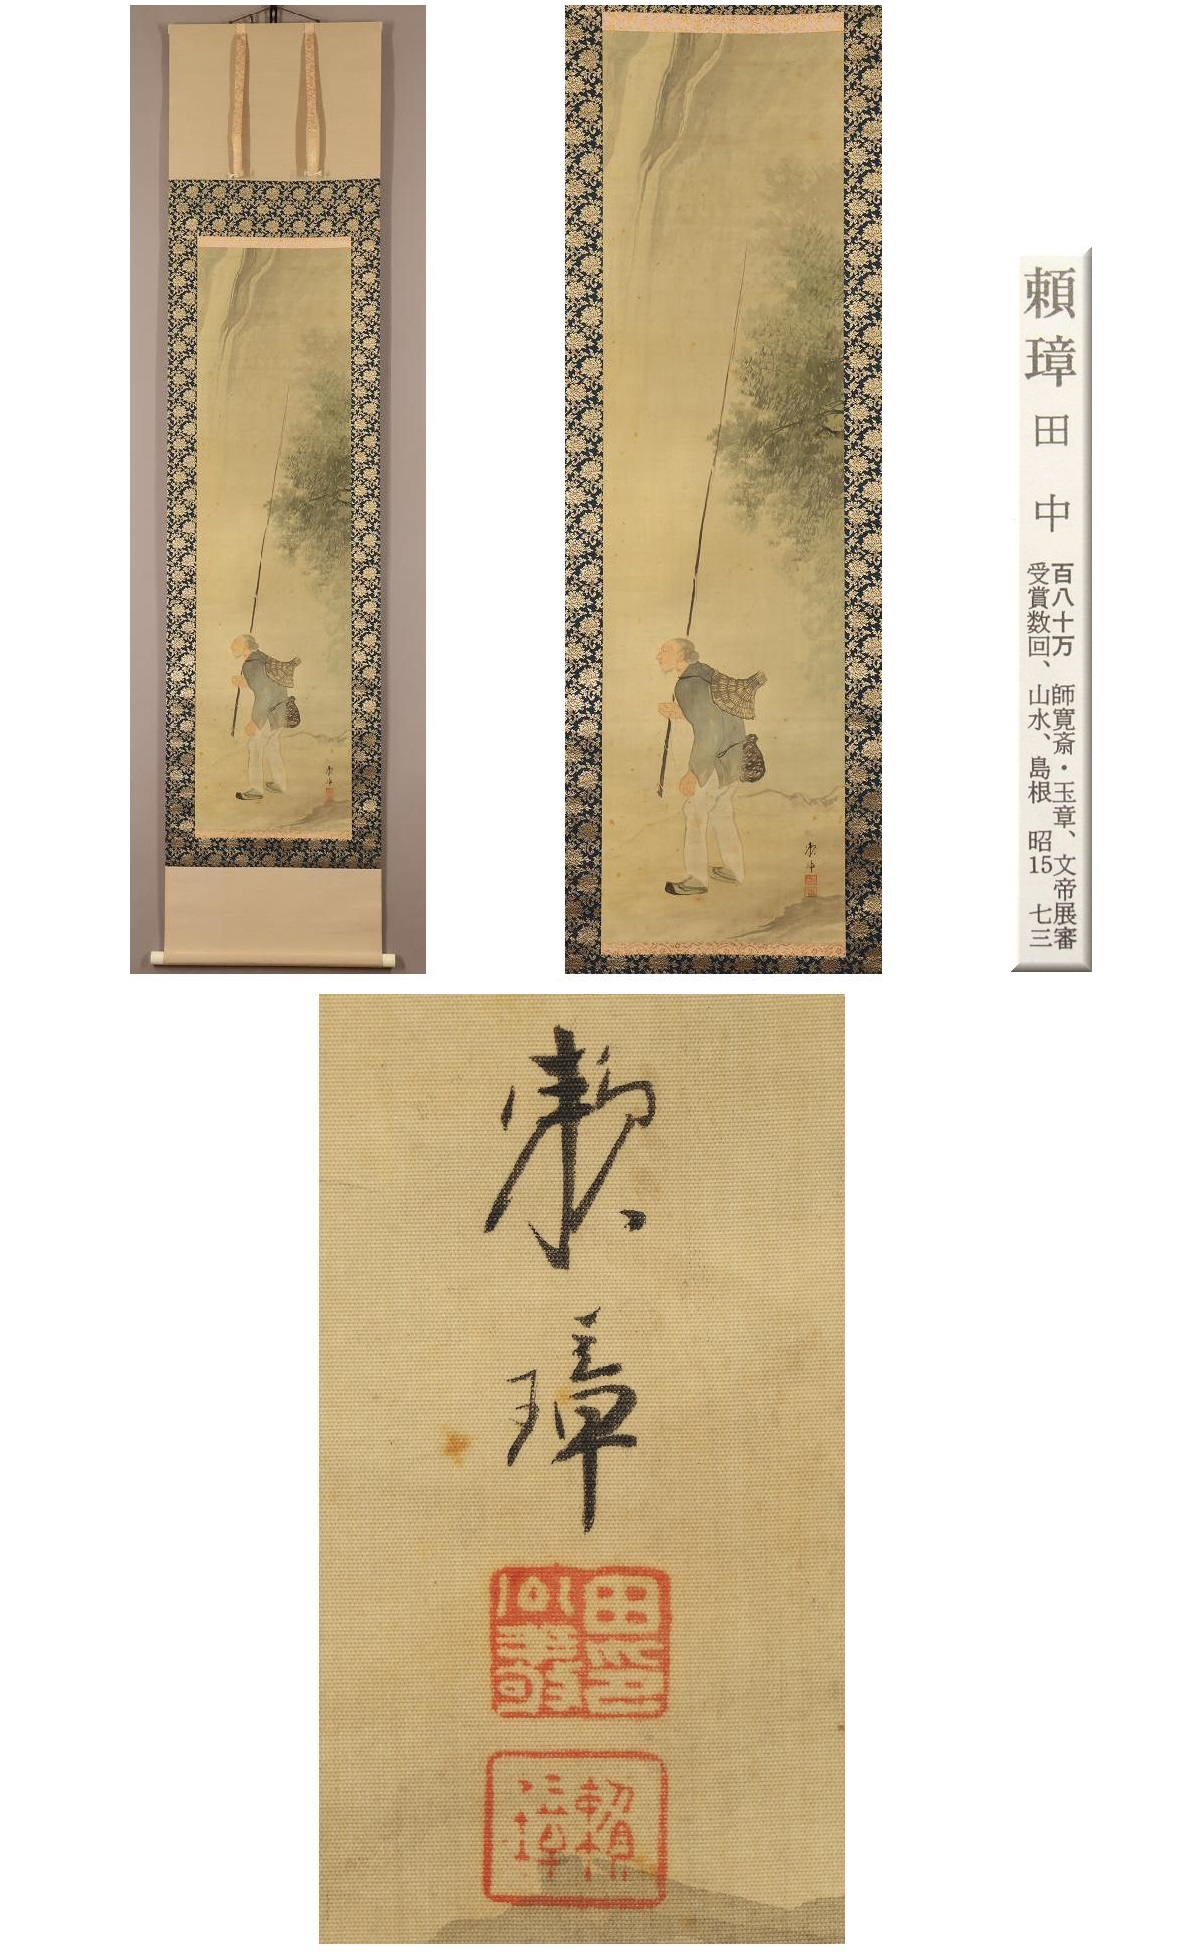 頼璋
頼璋
頼璋 田中
百八十万 師寛斎・玉章、文帝展審
受賞数回、山水、島根 昭15 七三
頼璋
頼璋